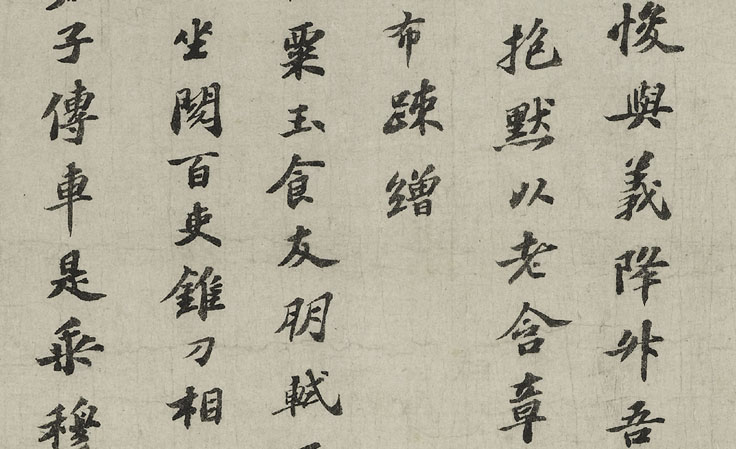 悛與義降外吾
抱默以老含章
布疎繒
粟玉食友朋軾
坐閱百吏錐刀相
子傳車是乘穆